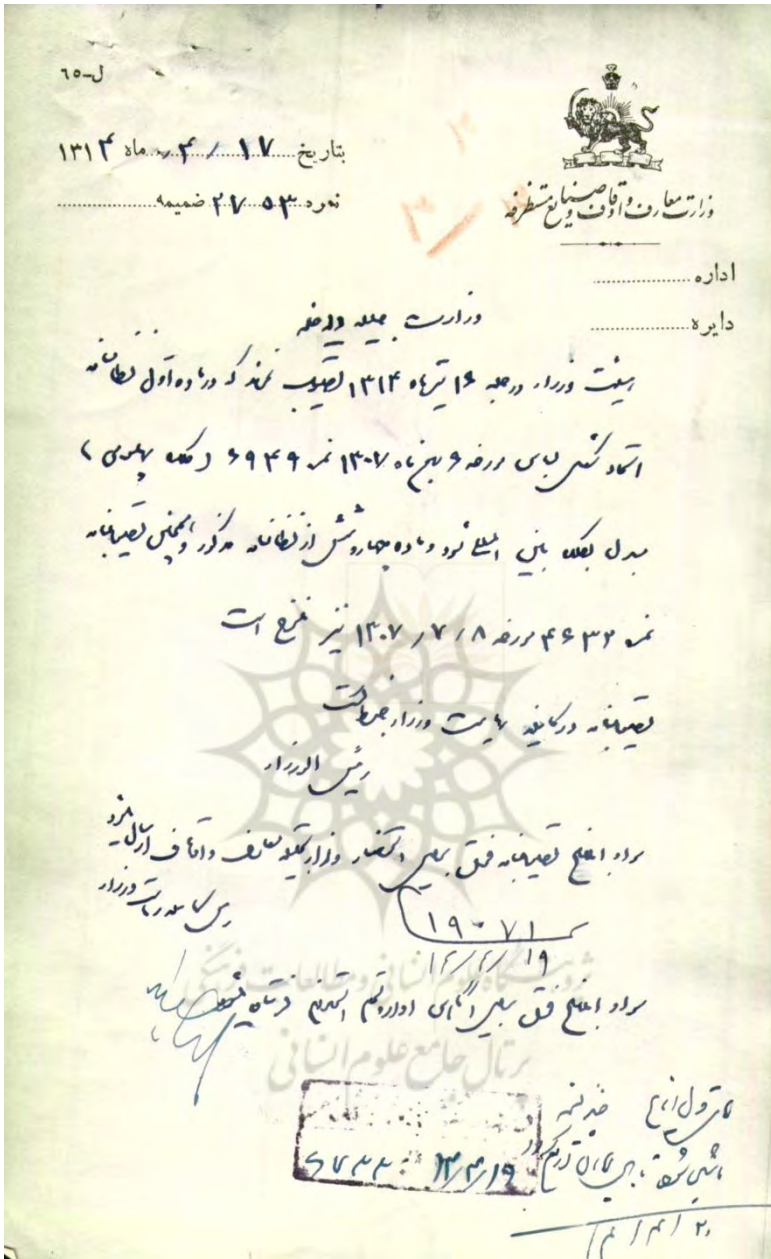 ل-۶۵
بتاریخ ۱۷ / ۴ ماه ۱۳۱۴
نمره ۲۷۵۳ ضمیمه
وزارت معارف و اوقاف و صنایع مستظرفه
اداره
دایره
وزارت جلیله داخله
هیئت وزراء در جلسه ۱۶ تیرماه ۱۳۱۴ تصویب نمودند که در ماده اول نظامنامه
متحدالشکل لباس مورخه ۶ بهمن ماه ۱۳۰۷ نمره ۶۹۴۹ (کلاه پهلوی)
مبدل بکلاه بین المللی شود و ماده چهار و شش از نظامنامه مذکور و همچنین تصویبنامه
نمره ۴۶۳۲ مورخه ۸ / ۷ / ۱۳۰۷ نیز ملغی است
تصویبنامه در کابینه ریاست وزراء ضبط است
رئیس الوزراء
سواد ابلاغ تصویبنامه فوق برای استحضار وزارت جلیله معارف و اوقاف ارسال میشود
رئیس کابینه ریاست وزراء
۱۹۰۷۱
۱۹/۴/۱۴
سواد ابلاغ فوق برای آگاهی اداره
پژوهشگاه علوم انسانی و مطالعات فرهنگی
پرتال جامع علوم انسانی
۶۷۳۳ ۱۴/۴/۱۹